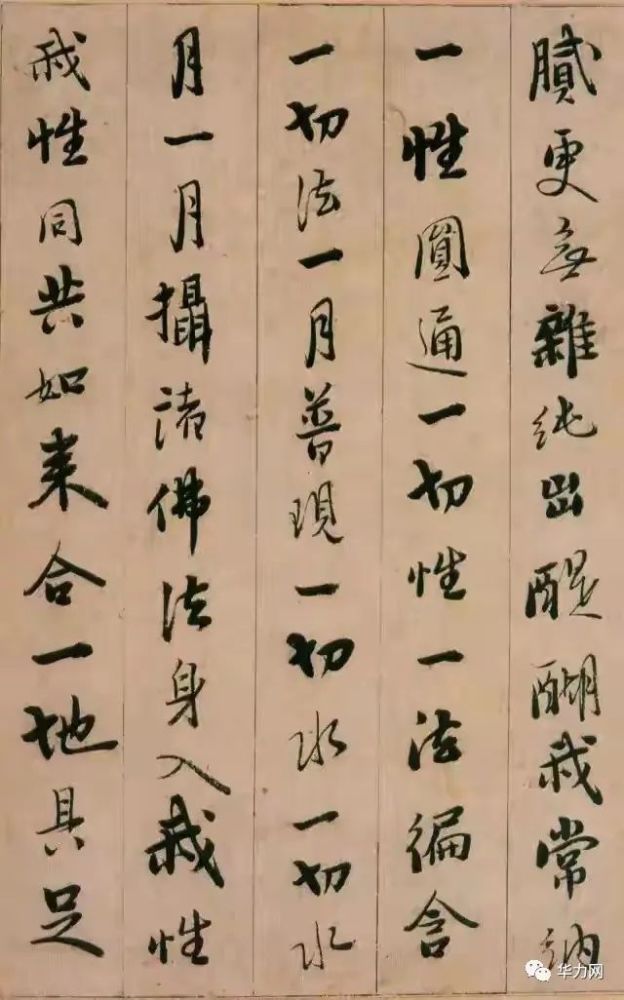 膩更無雜純出醍醐我常納
一性圓通一切性一法徧含
一切法一月普現一切水一切水
月一月攝諸佛法身入我性
我性同共如来合一地具足
华力网